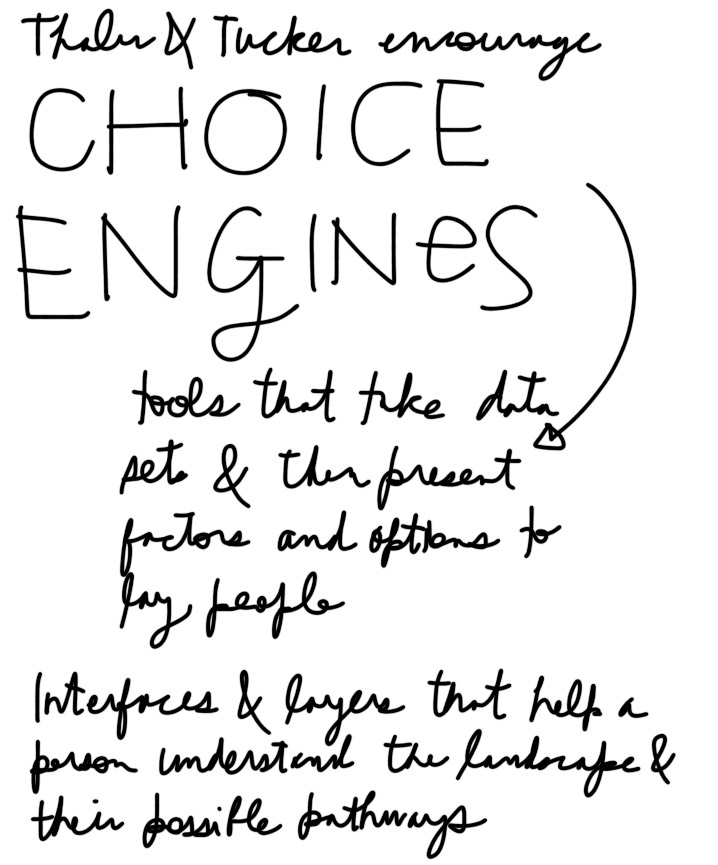 Thaler & Tucker encourage
CHOICE
ENGINES
tools that take data
sets & then present
factors and options to
lay people
Interfaces & layers that help a
person understand the landscape &
their possible pathways